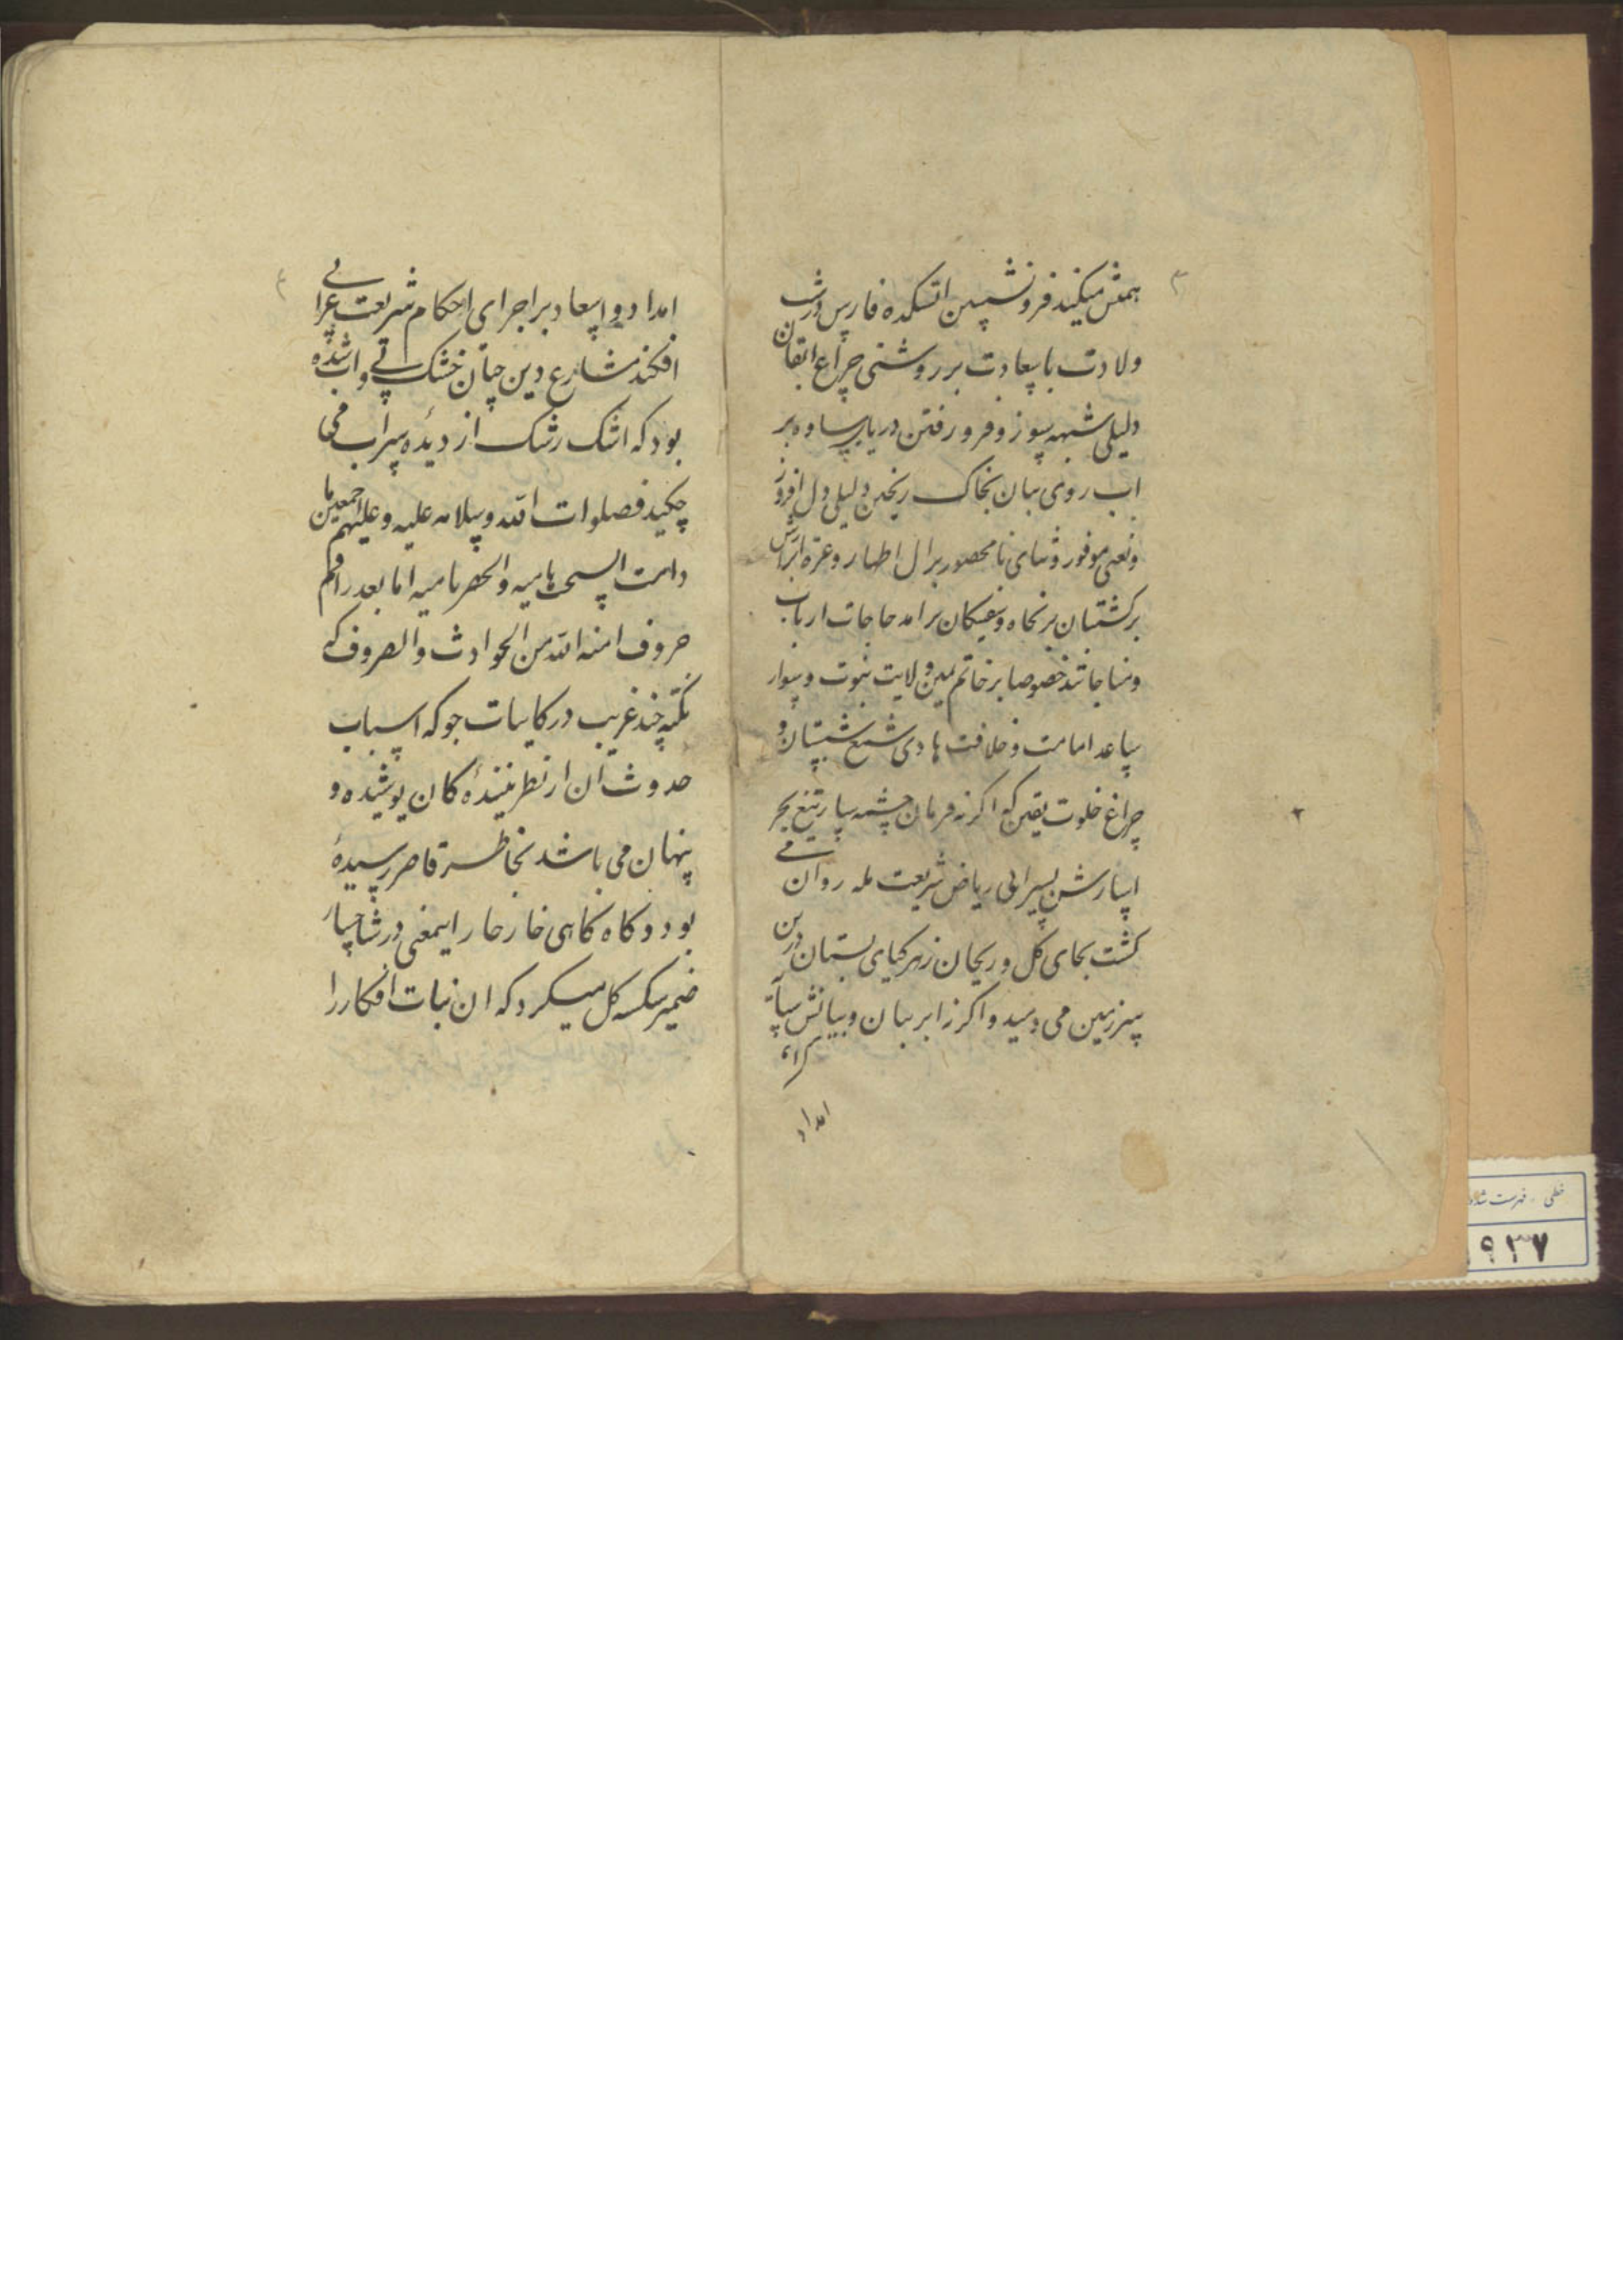 همتش میکند فرو نشستن اتشکده فارس در شب
ولادت با سعادت بر روشنی چراغ اتقان
دلیلی شبهه سوز و فرو رفتن دریای ساوه بر
اب روی بیان بخاک ریختن دلیلی دل افروز
و نعمی موفور و ثنای نا محصور بر ال اطهار و عترة ابرارش
بر کشتیان بر نخاه و سفینکان بر امد حاجات ارباب
و مناجاتند خصوصا بر خاتم یمین ولایت نبوت و سوار
ساعد امامت و خلافت هادی شمع شبستان و
چراغ خلوت یقین که اگر نه فرمان چشمه سار تیغ بحر
اسارش بسیرابی ریاض شریعت مله روان می
کشت بجای کل و ریحان زهر کیای بستان درین
سرزمین می دمید و اکر نه ابر بیان و بیانش سایه
امداد
امداد و اسعاد بر اجرای احکام شریعت غرا نمی
افکند مشارع دین چنان خشک و اب شده
بود که اشک رشک از دیده سراب می
چکید فصلوات الله و سلامه علیه و علیهم اجمعین ما
دامت السحب هامیه و الخضر نامیه اما بعد راقم
حروف امنه الله من الحوادث و الصروف که
نکته چند غریب در کاینات جو که اسباب
حدوث ان از نظر بیننده کان پوشیده و
پنهان می باشد بخاطر قاصر رسیده
بود و کاه کاهی خار خار ایمعنی در شاخسار
ضمیر شکسته کل میکرد که ان نبات افکار را
خطی - فهرست شده
۹۳۷